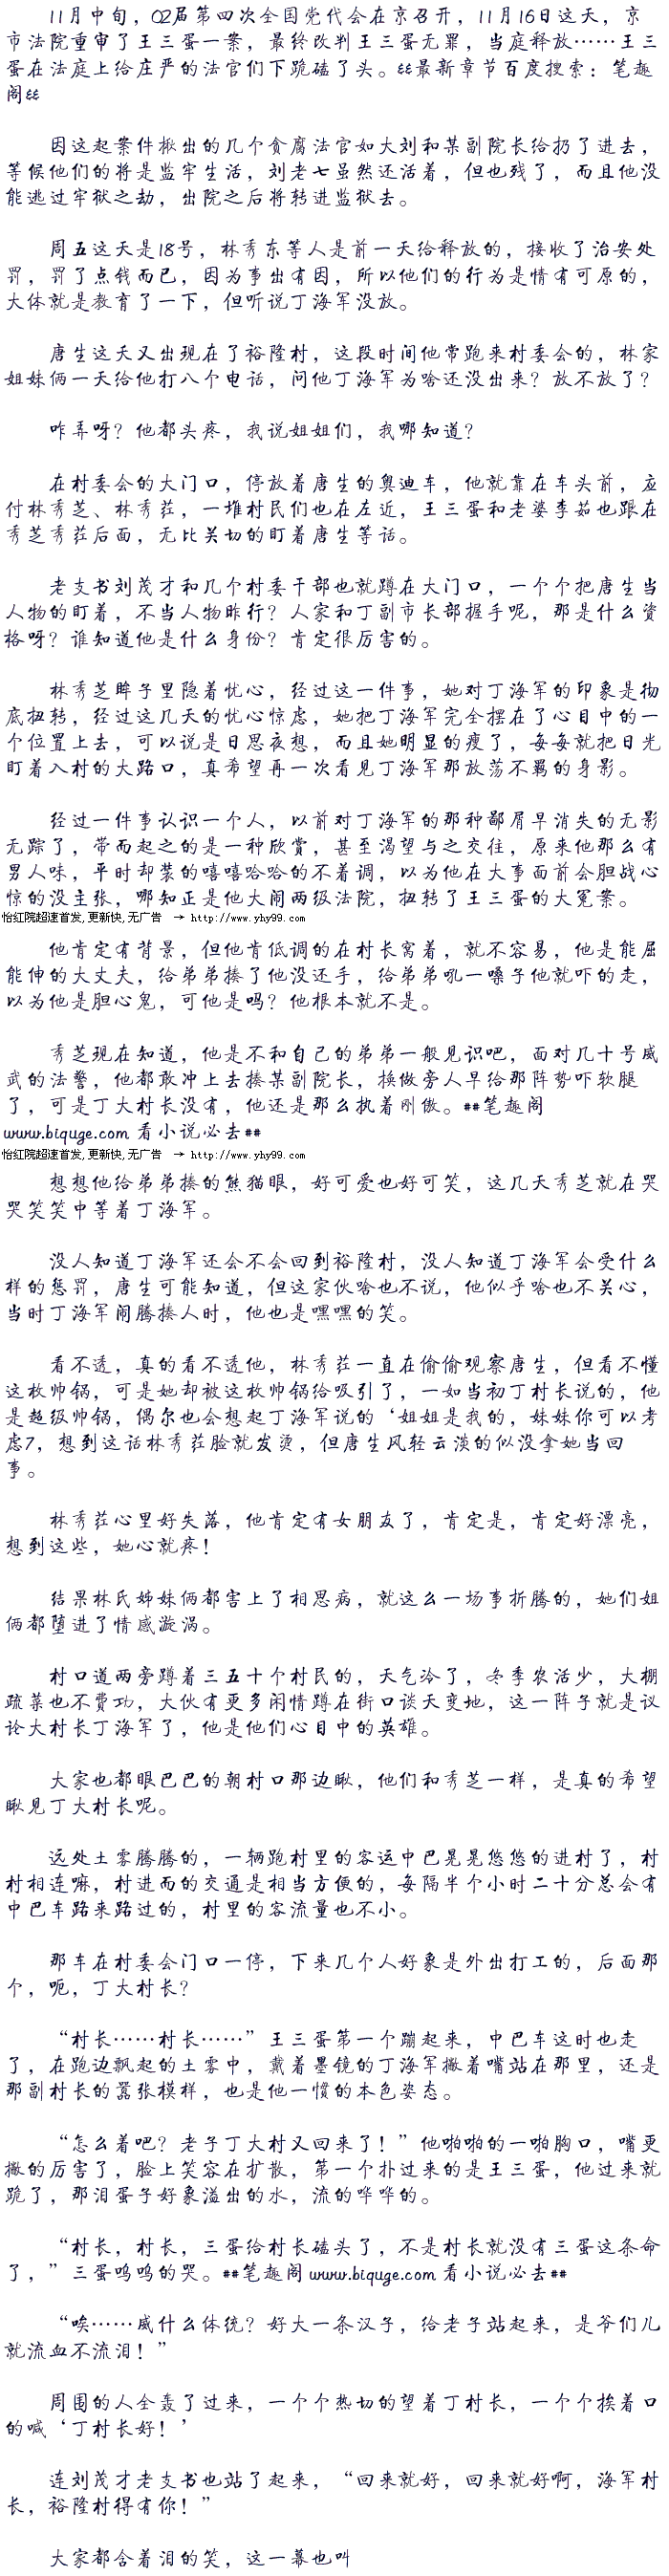 11月中旬，02届第四次全国党代会在京召开，11月16日这天，京
市法院重审了王三蛋一案，最终改判王三蛋无罪，当庭释放……王三
蛋在法庭上给庄严的法官们下跪磕了头。&&最新章节百度搜索：笔趣
阁&&
因这起案件揪出的几个贪腐法官如大刘和某副院长给扔了进去，
等候他们的将是监牢生活，刘老七虽然还活着，但也残了，而且他没
能逃过牢狱之劫，出院之后将转进监狱去。
周五这天是18号，林秀东等人是前一天给释放的，接收了治安处
罚，罚了点钱而已，因为事出有因，所以他们的行为是情有可原的，
大体就是教育了一下，但听说丁海军没放。
唐生这天又出现在了裕隆村，这段时间他常跑来村委会的，林家
姐妹俩一天给他打八个电话，问他丁海军为啥还没出来？放不放了？
咋弄呀？他都头疼，我说姐姐们，我哪知道？
在村委会的大门口，停放着唐生的奥迪车，他就靠在车头前，应
付林秀芝、林秀荭，一堆村民们也在左近，王三蛋和老婆李茹也跟在
秀芝秀荭后面，无比关切的盯着唐生等话。
老支书刘茂才和几个村委干部也就蹲在大门口，一个个把唐生当
人物的盯着，不当人物昨行？人家和丁副市长部握手呢，那是什么资
格呀？谁知道他是什么身份？肯定很厉害的。
林秀芝眸子里隐着忧心，经过这一件事，她对丁海军的印象是彻
底扭转，经过这几天的忧心惊虑，她把丁海军完全摆在了心目中的一
个位置上去，可以说是日思夜想，而且她明显的瘦了，每每就把目光
盯着入村的大路口，真希望再一次看见丁海军那放荡不羁的身影。
经过一件事认识一个人，以前对丁海军的那种鄙屑早消失的无影
无踪了，带而起之的是一种欣赏，甚至渴望与之交往，原来他那么有
男人味，平时却装的嘻嘻哈哈的不着调，以为他在大事面前会胆战心
惊的没主张，哪知正是他大闹两级法院，扭转了王三蛋的大冤案。
怡红院超速首发,更新快,无广告 → http://www.yhy99.com
他肯定有背景，但他肯低调的在村长窝着，就不容易，他是能屈
能伸的大丈夫，给弟弟揍了他没还手，给弟弟吼一嗓子他就吓的走，
以为他是胆心鬼，可他是吗？他根本就不是。
秀芝现在知道，他是不和自己的弟弟一般见识吧，面对几十号威
武的法警，他都敢冲上去揍某副院长，换做旁人早给那阵势吓软腿
了，可是丁大村长没有，他还是那么执着刚傲。##笔趣阁
www.biquge.com 看小说必去##
怡红院超速首发,更新快,无广告 → http://www.yhy99.com
想想他给弟弟揍的熊猫眼，好可爱也好可笑，这几天秀芝就在哭
哭笑笑中等着丁海军。
没人知道丁海军还会不会回到裕隆村，没人知道丁海军会受什么
样的惩罚，唐生可能知道，但这家伙啥也不说，他似乎啥也不关心，
当时丁海军闹腾揍人时，他也是嘿嘿的笑。
看不透，真的看不透他，林秀荭一直在偷偷观察唐生，但看不懂
这枚帅锅，可是她却被这枚帅锅给吸引了，一如当初丁村长说的，他
是超级帅锅，偶尔也会想起丁海军说的‘姐姐是我的，妹妹你可以考
虑7，想到这话林秀荭脸就发烫，但唐生风轻云淡的似没拿她当回
事。
林秀荭心里好失落，他肯定有女朋友了，肯定是，肯定好漂亮，
想到这些，她心就疼！
结果林氏姊妹俩都害上了相思病，就这么一场事折腾的，她们姐
俩都堕进了情感漩涡。
村口道两旁蹲着三五十个村民的，天气冷了，冬季农活少，大棚
疏菜也不费功，大伙有更多闲情蹲在街口谈天变地，这一阵子就是议
论大村长丁海军了，他是他们心目中的英雄。
大家也都眼巴巴的朝村口那边瞅，他们和秀芝一样，是真的希望
瞅见丁大村长呢。
远处土雾腾腾的，一辆跑村里的客运中巴晃晃悠悠的进村了，村
村相连嘛，村进而的交通是相当方便的，每隔半个小时二十分总会有
中巴车路来路过的，村里的客流量也不小。
那车在村委会门口一停，下来几个人好象是外出打工的，后面那
个，呃，丁大村长？
“村长……村长……”王三蛋第一个蹦起来，中巴车这时也走
了，在跑边飘起的土雾中，戴着墨镜的丁海军撇着嘴站在那里，还是
那副村长的嚣张模样，也是他一惯的本色姿态。
“怎么着吧？老子丁大村又回来了！”他啪啪的一啪胸口，嘴更
撇的厉害了，脸上笑容在扩散，第一个扑过来的是王三蛋，他过来就
跪了，那泪蛋子好象溢出的水，流的哗哗的。
“村长，村长，三蛋给村长磕头了，不是村长就没有三蛋这条命
了，”三蛋呜呜的哭。##笔趣阁 www.biquge.com 看小说必去##
“唉……威什么体统？好大一条汉子，给老子站起来，是爷们儿
就流血不流泪！”
周围的人全轰了过来，一个个热切的望着丁村长，一个个挨着口
的喊‘丁村长好！’
连刘茂才老支书也站了起来，“回来就好，回来就好啊，海军村
长，裕隆村得有你！”
大家都含着泪的笑，这一幕也叫